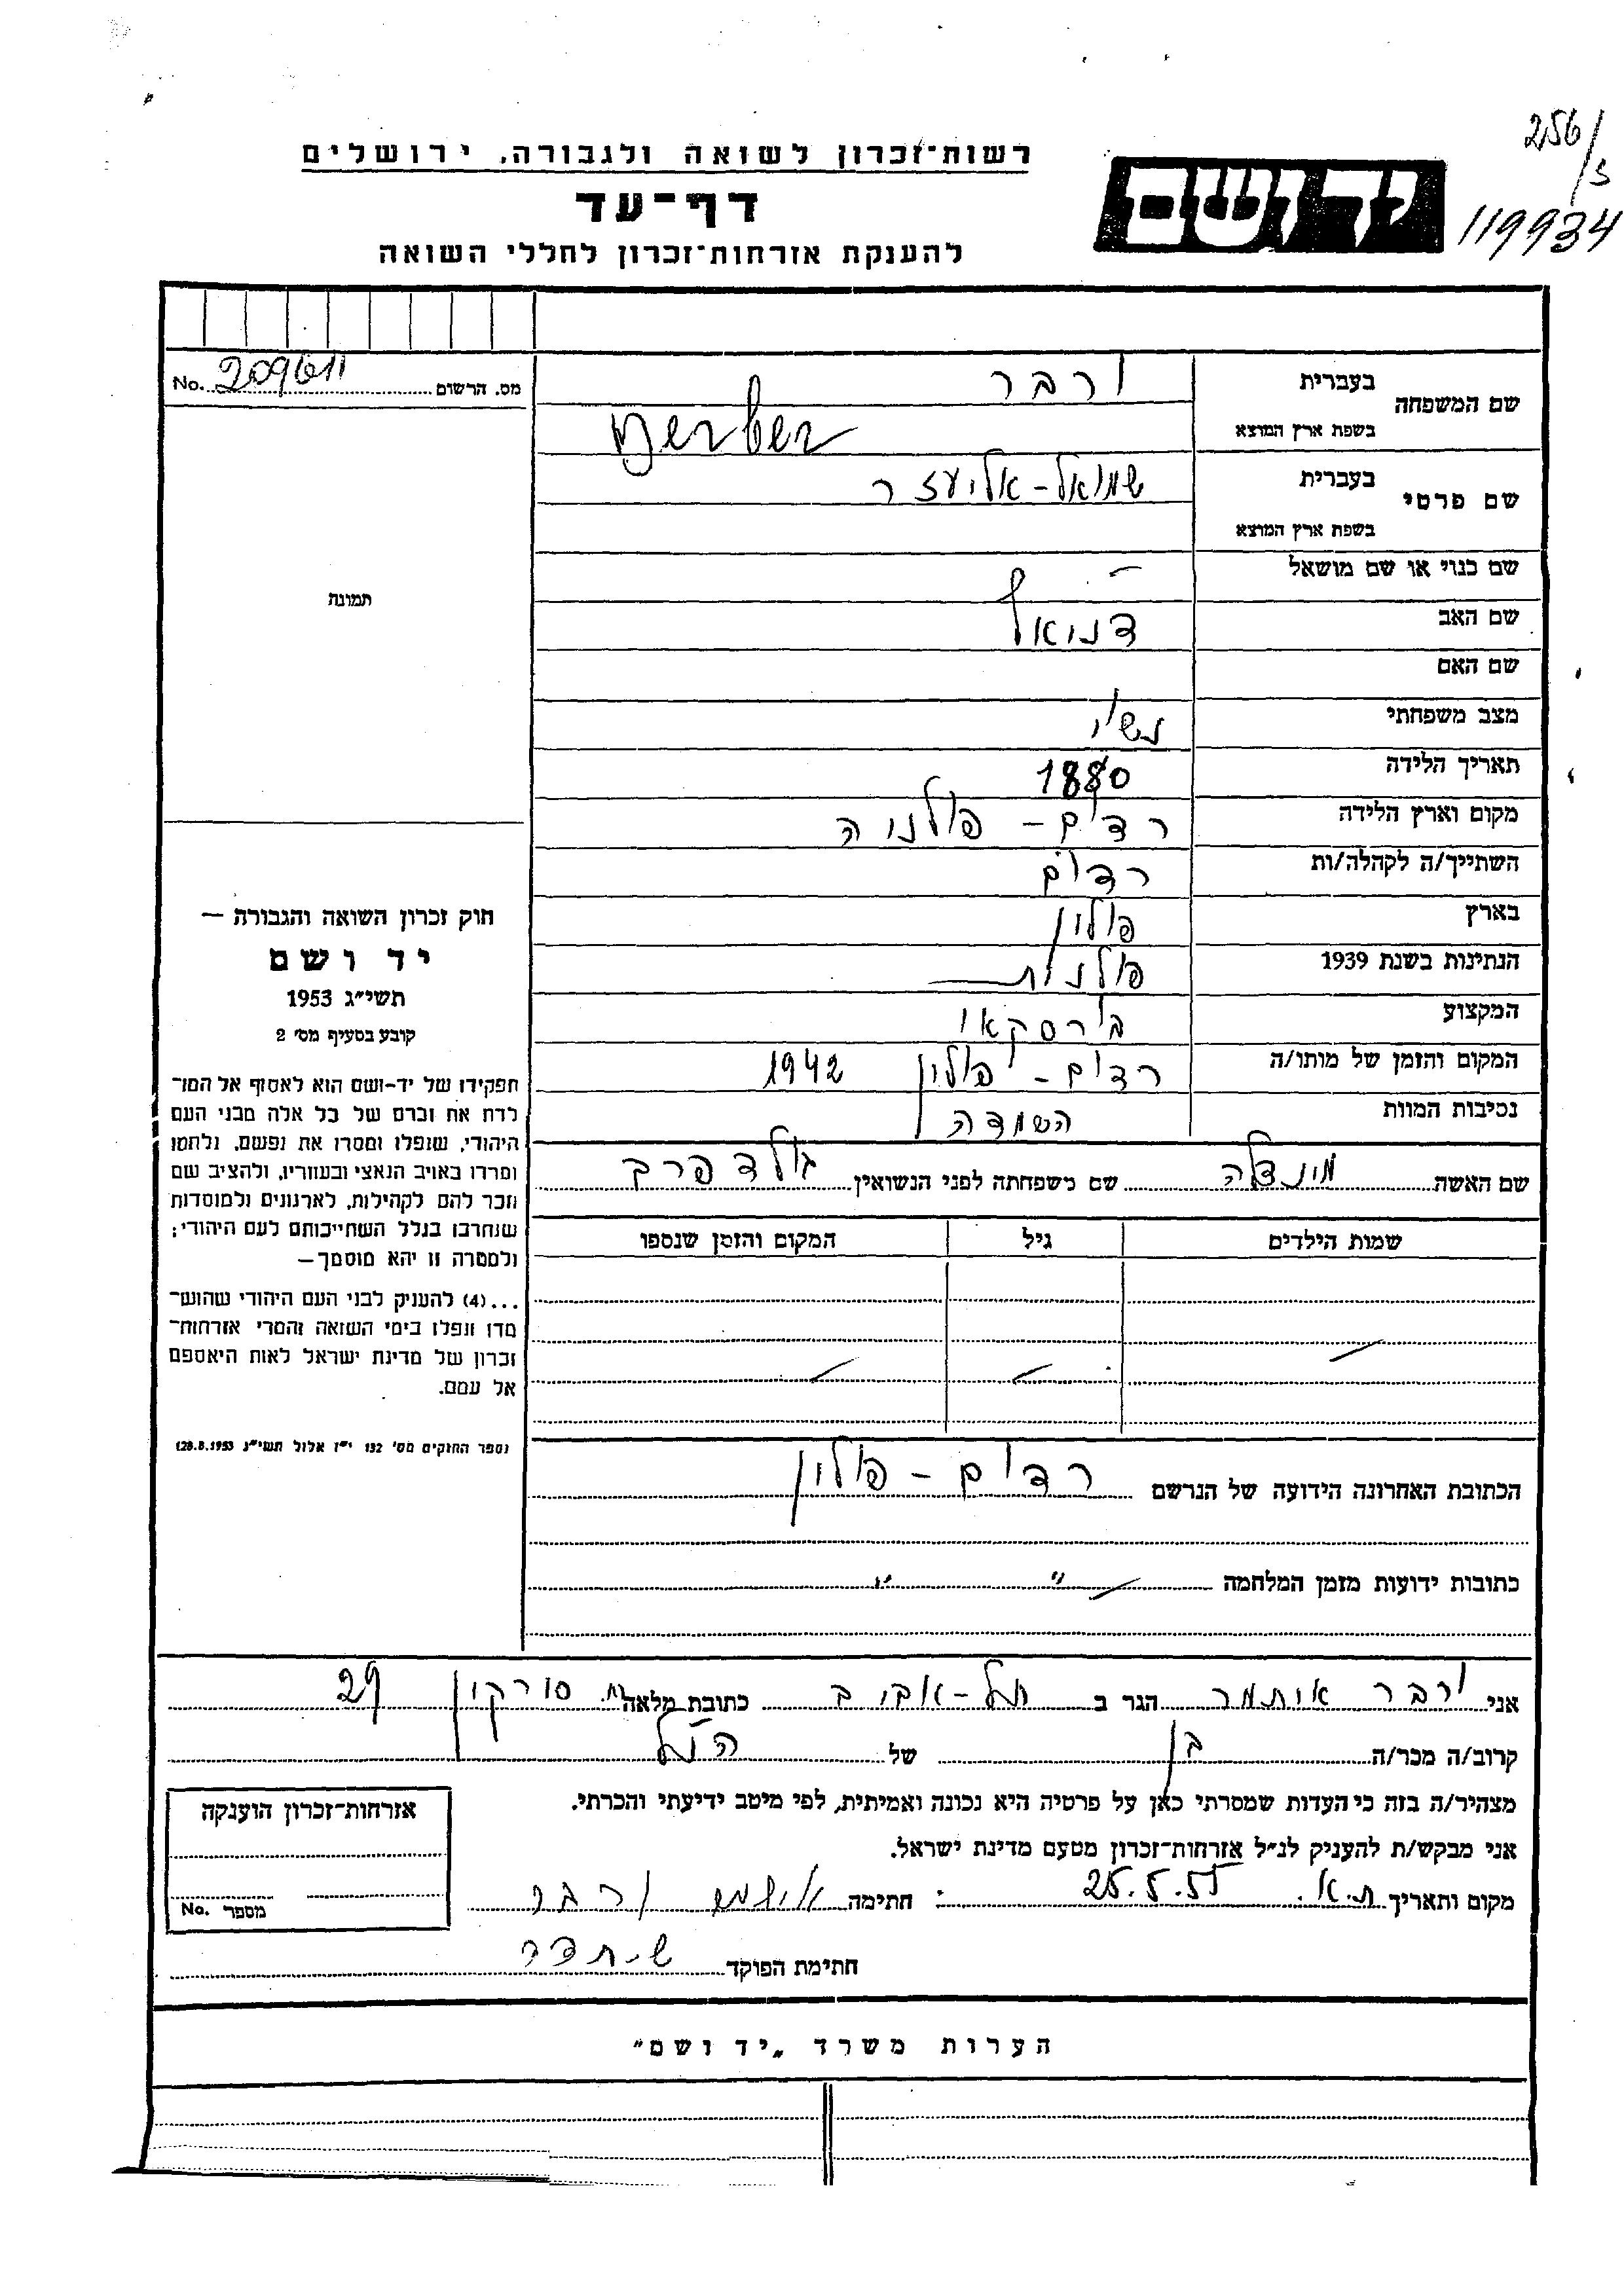 256/3
119934
ידושם
רשות־זכרון לשואה ולגבורה, ירושלים
דף־עד
להענקת אזרחות־זכרון לחללי השואה
מס. הרשום 209611 No.
שם המשפחה
בעברית ורבר
בשפת ארץ המוצא Werber
שם פרטי
בעברית שמואל-אליעזר
בשפת ארץ המוצא
שם כנוי או שם מושאל -
שם האב דניאל
שם האם
מצב משפחתי נשוי
תאריך הלידה 1880
מקום וארץ הלידה רדום - פולניה
השתייך/ה לקהלה/ות רדום
בארץ פולין
הנתינות בשנת 1939 פולנית
המקצוע בורסקאי
המקום והזמן של מותו/ה רדום - פולין 1942
נסיבות המוות השמדה
תמונה
חוק זכרון השואה והגבורה —
יד ושם
תשי״ג 1953
קובע בסעיף מס׳ 2
תפקידו של יד-ושם הוא לאסוף אל המו־
לדת את זכרם של כל אלה מבני העם
היהודי, שנפלו ומסרו את נפשם, נלחמו
ומרדו באויב הנאצי ובעוזריו, ולהציב שם
וזכר להם לקהילות, לארגונים ולמוסדות
שנחרבו בגלל השתייכותם לעם היהודי;
ולמטרה זו יהא מוסמך —
...(4) להעניק לבני העם היהודי שהוש־
מדו ונפלו בימי השואה והמרי אזרחות־
זכרון של מדינת ישראל לאות היאספם
אל עמם.
(ספר החוקים מס׳ 132 י״ז אלול תשי״ג 28.8.1953)
שם האשה מינדלה שם משפחתה לפני הנשואין גולדפרב
שמות הילדים גיל המקום והזמן שנספו
הכתובת האחרונה הידועה של הנרשם רדום - פולין
כתובות ידועות מזמן המלחמה " "
אני ורבר איתמר הגר ב תל-אביב כתובת מלאה סורקין 29
קרוב/ה מכר/ה בן של הנ״ל
מצהיר/ה בזה כי העדות שמסרתי כאן על פרטיה היא נכונה ואמיתית, לפי מיטב ידיעתי והכרתי.
אני מבקש/ת להעניק לנ״ל אזרחות־זכרון מטעם מדינת ישראל.
מקום ותאריך ת.א. 25.5.55 חתימה איתמר ורבר
חתימת הפוקד
אזרחות־זכרון הוענקה
מספר No.
הערות משרד „יד ושם״